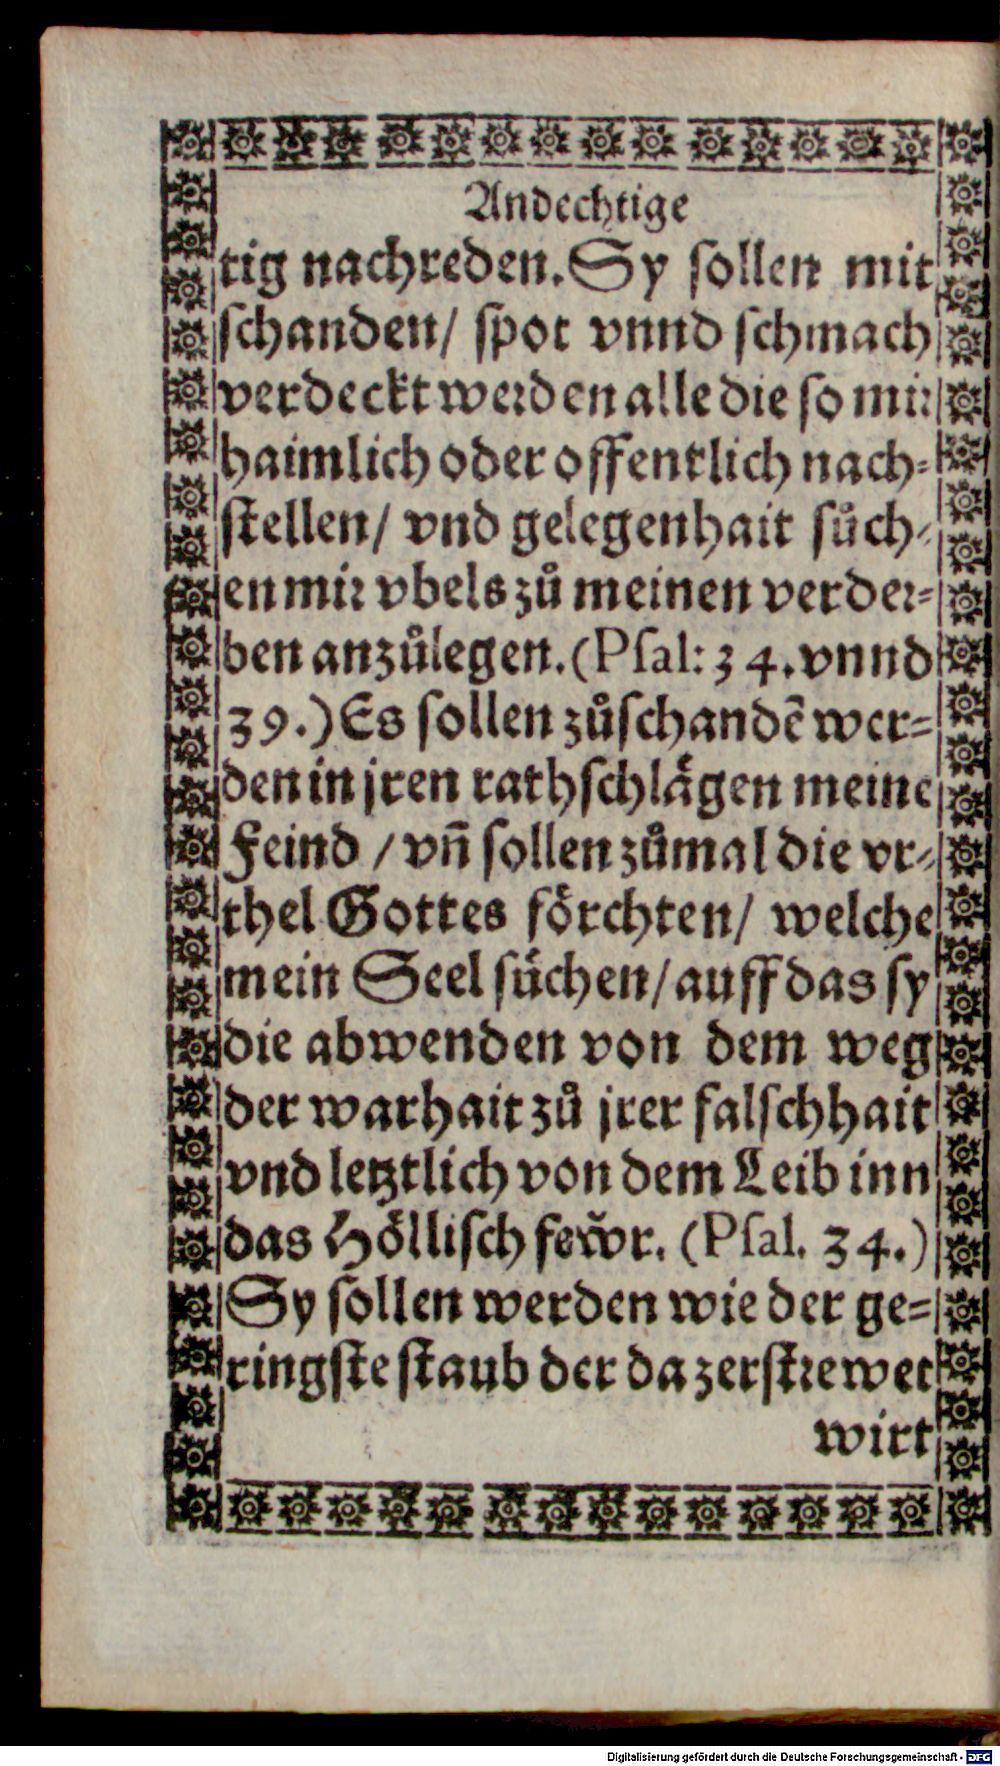 Andechtige
tig nachreden. Sy ſollen mit
ſchanden/ ſpot vnnd ſchmach
verdeckt werden alle die ſo mir
haimlich oder offentlich nach⸗
ſtellen/ vnd gelegenhait ſuͦch⸗
en mir vbels zuͦ meinen verder⸗
ben anzuͦlegen. (Pſal: 34. vnnd
39.) Es ſollen zuͦſchandẽ wer⸗
den in jren rathſchlaͤgen meine
Feind / vñ ſollen zuͦmal die vr⸗
thel Gottes foͤrchten/ welche
mein Seel ſuͤchen/ auff das ſy
die abwenden von dem weg
der warhait zuͦ jrer falſchhait
vnd letztlich von dem Leib inn
das Hoͤlliſch few̃r. (Pſal. 34.)
Sy ſollen werden wie der ge⸗
ringſte ſtaub der da zerſtrewet
wirt
Digitalisierung gefördert durch die Deutsche Forschungsgemeinschaft - DFG